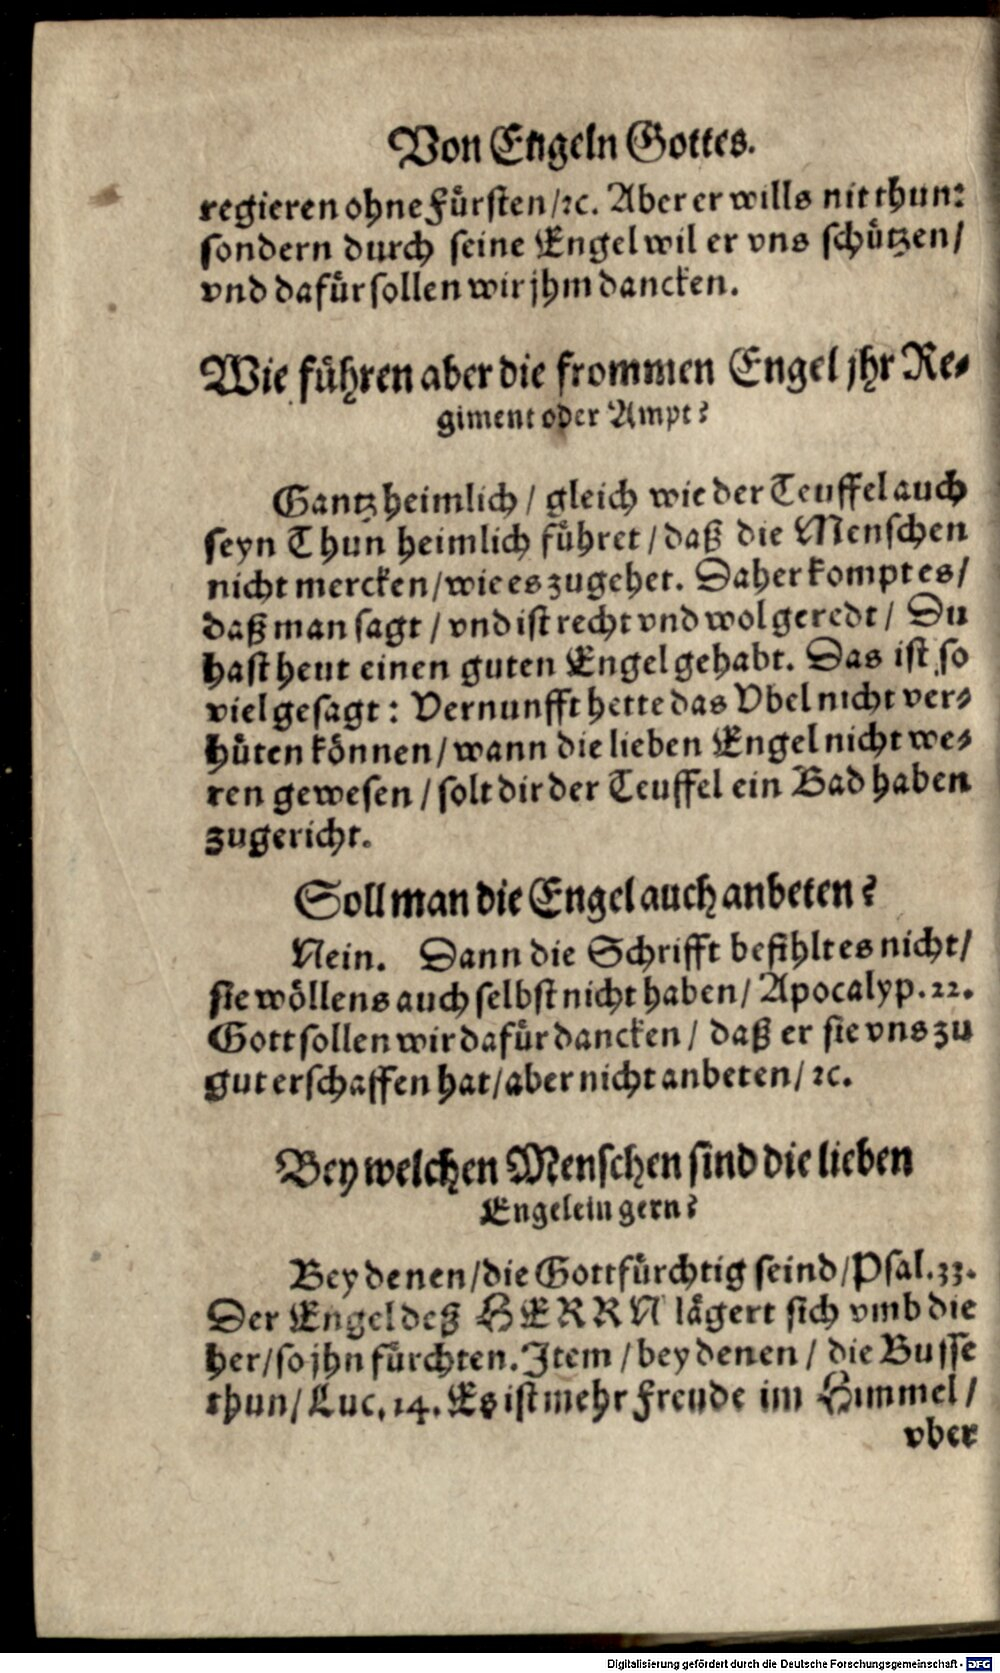 Von Engeln Gottes.
regieren ohne Fürsten/ꝛc. Aber er wills nit thun:
sondern durch seine Engel wil er vns schützen/
vnd dafür sollen wir jhm dancken.
Wie führen aber die frommen Engel jhr Re-
giment oder Ampt?
Gantz heimlich / gleich wie der Teuffel auch
seyn Thun heimlich führet / daß die Menschen
nicht mercken/wie es zugehet. Daher kompt es/
daß man sagt / vnd ist recht vnd wol geredt / Du
hast heut einen guten Engel gehabt. Das ist so
viel gesagt: Vernunfft hette das Vbel nicht ver-
hüten können/wann die lieben Engel nicht we-
ren gewesen / solt dir der Teuffel ein Bad haben
zugericht.
Soll man die Engel auch anbeten?
Nein. Dann die Schrifft befihlt es nicht/
sie wöllens auch selbst nicht haben/ Apocalyp. 22.
Gott sollen wir dafür dancken / daß er sie vns zu
gut erschaffen hat/aber nicht anbeten/ ꝛc.
Bey welchen Menschen sind die lieben
Engelein gern?
Bey denen/die Gottfürchtig seind/Psal. 33.
Der Engel deß HERRN lägert sich vmb die
her/so jhn fürchten. Item / bey denen / die Busse
thun/ Luc. 14. Es ist mehr Freude im Himmel/
vber
Digitalisierung gefördert durch die Deutsche Forschungsgemeinschaft - DFG